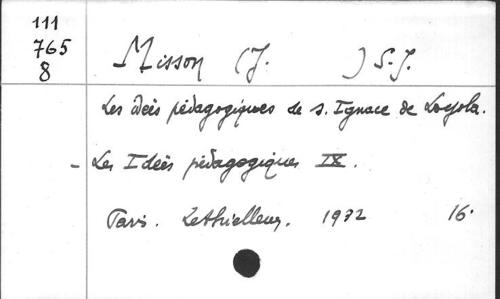 111
765
8
Misson (J. ) S.J.
Les idées pédagogiques de S. Ignace de Loyola.
- Les Idées pédagogiques IX.
Paris. Lethielleux. 1932 16.